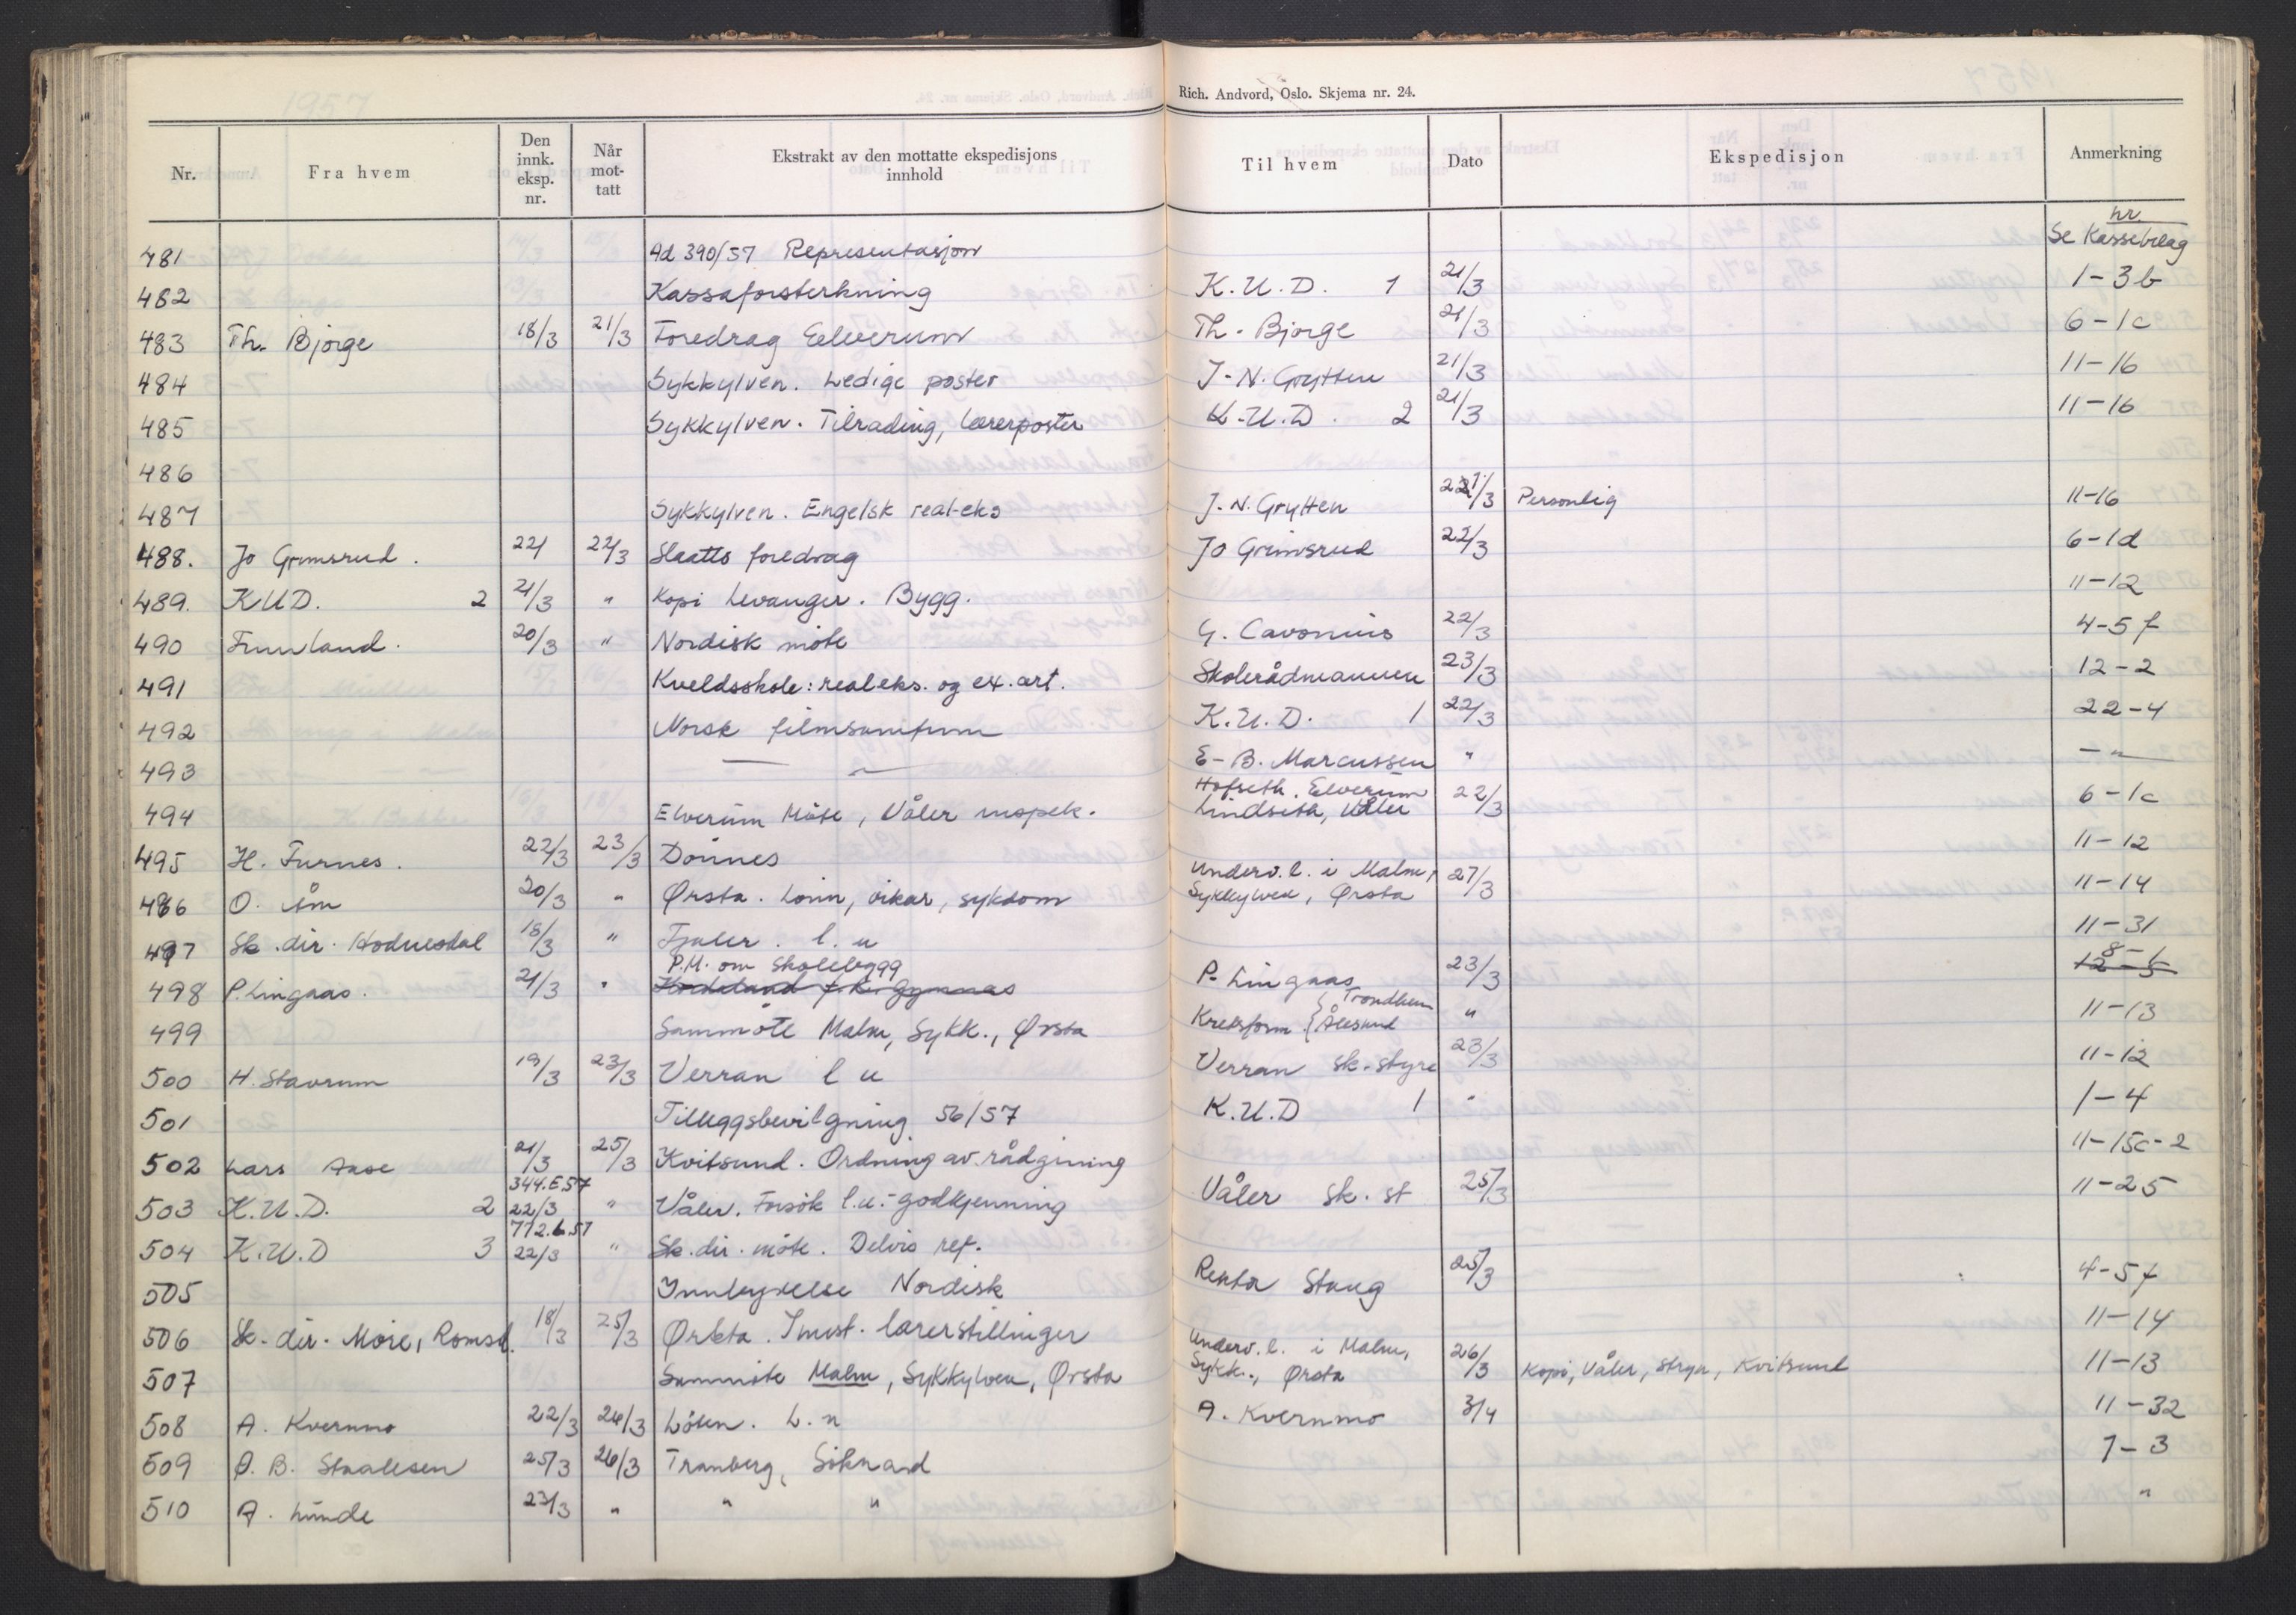 1957
Rich. Andvord, Oslo. Skjema nr. 24.
Nr. Fra hvem Den innk. eksp. nr. Når mot-tatt Ekstrakt av den mottatte ekspedisjons innhold Til hvem Dato Ekspedisjon Anmerkning
nr.
481 Ad 390/57 Representasjon Se Kassebilag
482 Kassaforsterkning K.U.D. 1 21/3 1-3b
483 Th. Bjørge 18/3 21/3 Foredrag Eelverum Th. Bjørge 21/3 6-1c
484 Sykkylven. Ledige poster J.N. Grytten 21/3 11-16
485 Sykkylven. Tilrading, lærerposter K.U.D. 2 21/3 11-16
486
487 Sykkylven. Engelsk real-eks J.N. Grytten /3 Personlig 11-16
488. Jo Grimsrud. 22/ 22/3 Slaatts foredrag Jo Grimsrud 22/3 6-1d
489. KUD. 2 21/3 " Kopi Levanger. Bygg. 11-12
490 Finnland. 20/3 " Nordisk möte G. Cavonius 22/3 4-5f
491 Kveldsskole: realeks. og ex.art. Skolerådmannen 23/3 12-2
492 Norsk filmsamfunn K.U.D. 1 22/3 22-4
493 — " — E.B. Marcussen " — " —
Hofseth. Elverum
494 Elverum Möte, Våler inspek. Lindseth, Våler 22/3 6-1c
495 H. Furnes. 22/3 23/3 Dönnes 11-12
Underv.l. i Malm,
496 O. Åm 20/3 " Ørsta. Lönn, vikar, sykdom Sykkylven, Ørsta 27/3 11-14
497 Sk.dir. Hodnesdal 18/3 " Fjaler. l.u 11-31
P.M. om Skolebygg 8-1
498 P. Lingaas. 21/3 " Hordaland f.k. Gymnas P. Lingaas 23/3 12-5
Trondheim
499 Sammöte Malm, Sykk., Ørsta Kretsform. { Ålesund " 11-13
500 H. Stavrum 19/3 23/3 Verran l u Verran sk.styre 23/3 11-12
501 Tilleggsbevilgning 56/57 K.U.D 1 " 1-4
502 Lars Aase 21/3 25/3 Kvitsund. Ordning av rådgivning 11-15c-2
344.E.57
503 K.U.D. 2 22/3 " Våler. Forsök l.u.- godkjenning Våler sk.st 25/3 11-25
772.6.57
504 K.U.D 3 22/3 " Sk.dir. möte. Delvis ref.
505 Innbydelse Nordisk Rektor Stang 25/3 4-5f
506 Sk.dir. Möre, Romsd. 18/3 25/3 Ørsta. Innst. lærerstillinger 11-14
Underv.l. i Malm,
507 Sammöte Malm, Sykkylven, Ørsta Sykk., Ørsta 26/3 Kopi, Våler, Stryn, Kvitsund 11-13
508 A. Kvernmo 22/3 26/3 Löten. L.u A. Kvernmo 3/4 11-32
509 O.B. Staalesen 25/3 26/3 Tranberg, Söknad 7-3
510 A. Lunde 23/3 " " " "